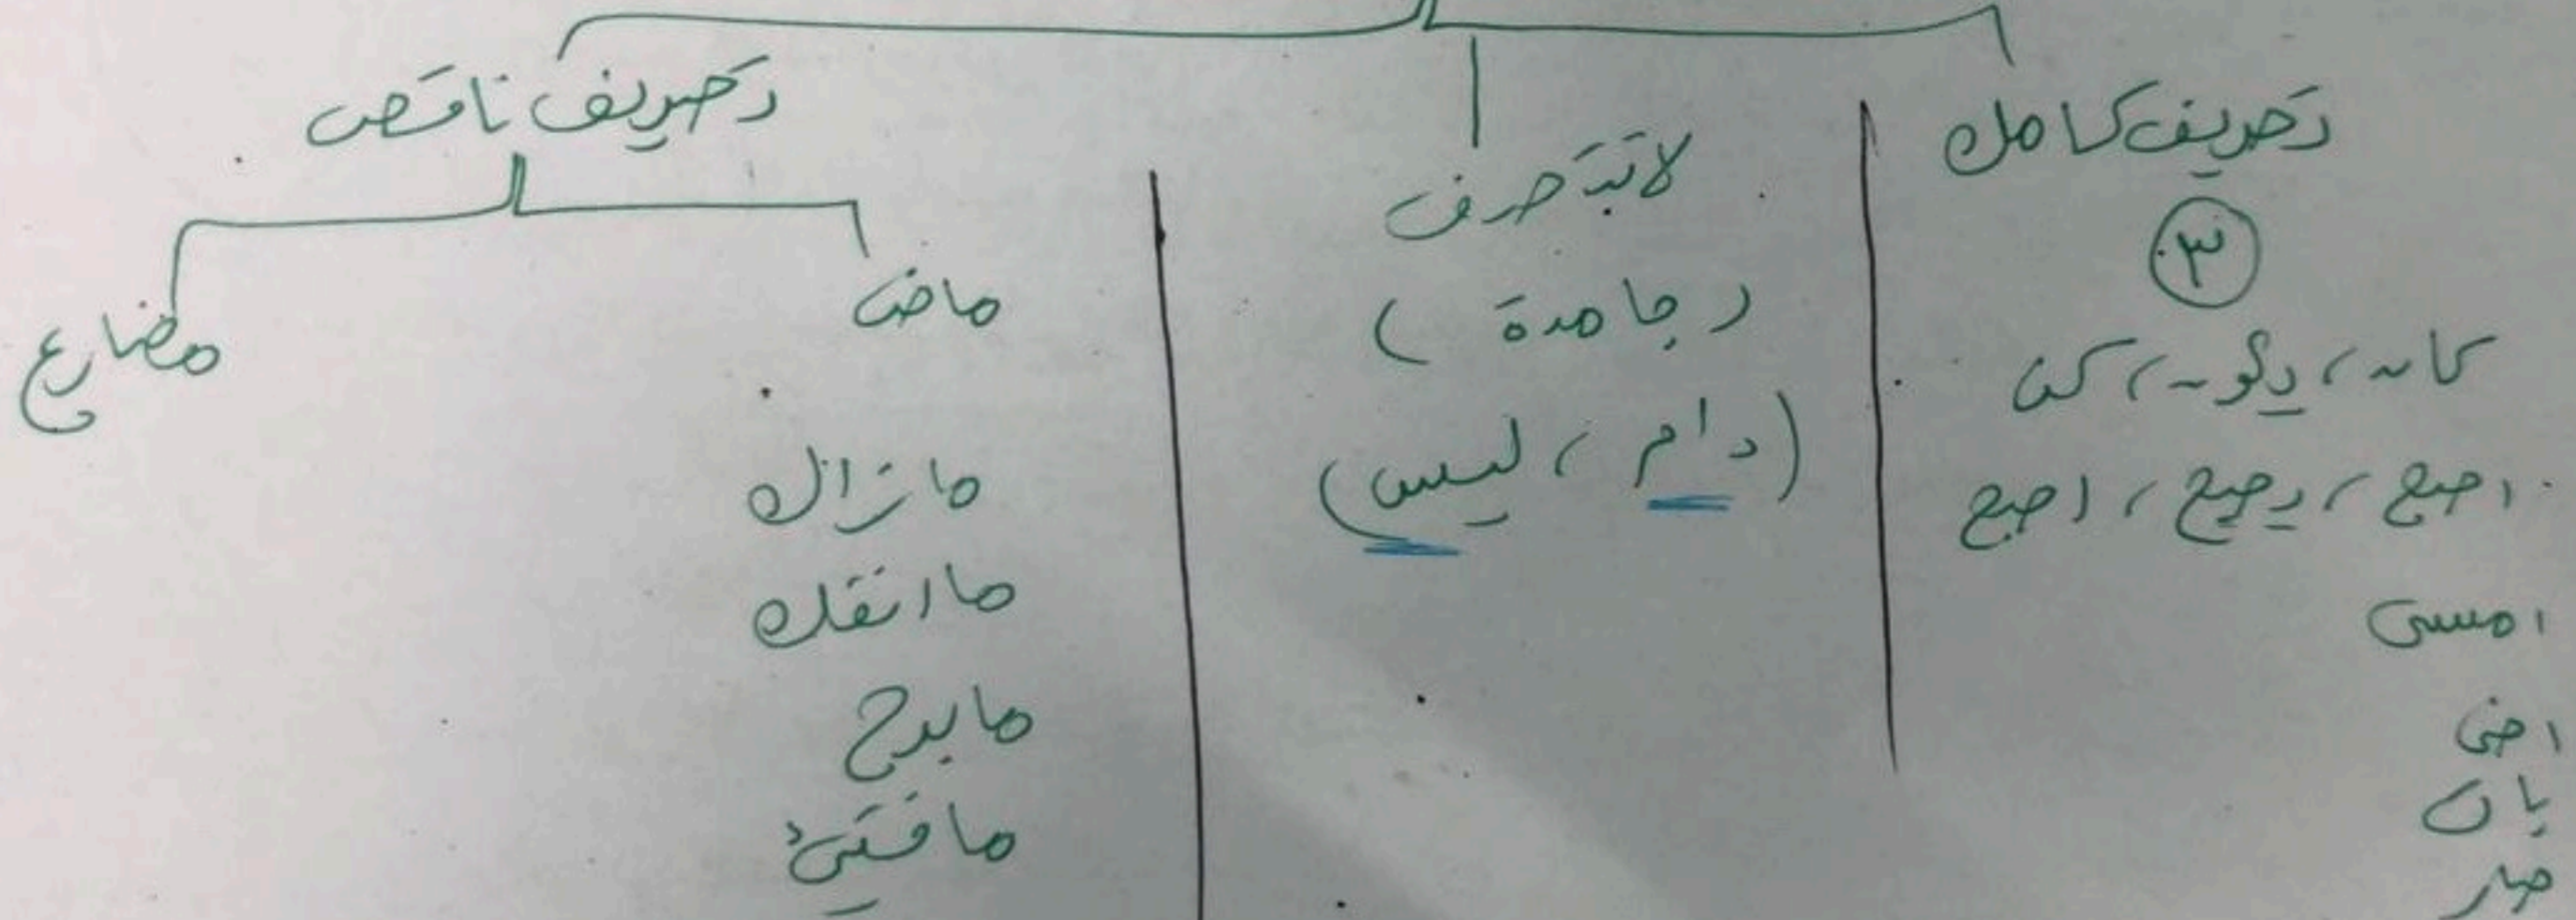 تصريف كامل
٣
كان ، يكون ، كن
اصبح ، يصبح ، اصبح
امسى
اضحى
بات
صار
لا تتصرف
( جامدة )
( دام ، ليس )
تصريف ناقص
ماض
مازال
ما انفك
مابرح
مافتئ
مضارع